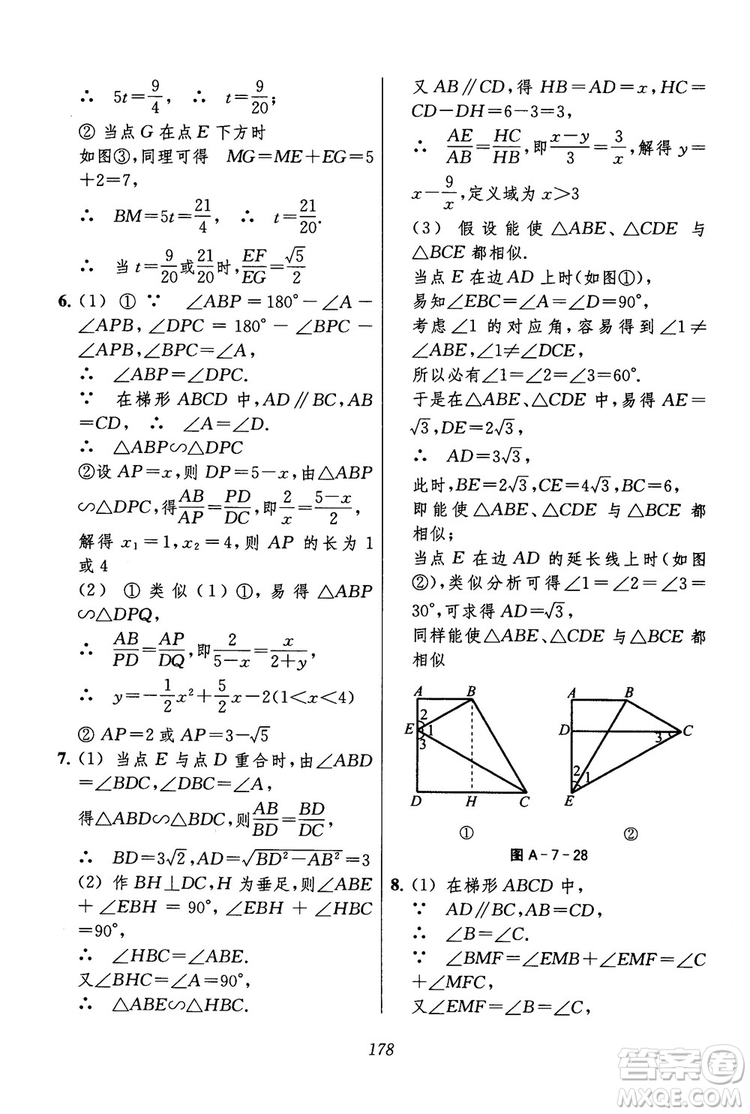 ∴ 5t=9/4, ∴ t=9/20;
② 当点 G 在点 E 下方时
如图③,同理可得 MG=ME+EG=5
+2=7,
∴ BM=5t=21/4, ∴ t=21/20.
∴ 当 t=9/20或21/20时,EF/EG=√5/2
6. (1) ① ∵ ∠ABP=180°-∠A-
∠APB,∠DPC=180°-∠BPC-
∠APB,∠BPC=∠A,
∴ ∠ABP=∠DPC.
∵ 在梯形 ABCD 中,AD∥BC,AB
=CD, ∴ ∠A=∠D.
∴ △ABP∽△DPC
②设 AP=x,则 DP=5-x,由△ABP
∽△DPC,得AB/AP=PD/DC,即2/x=(5-x)/2,
解得 x₁=1,x₂=4,则 AP 的长为 1
或 4
(2) ① 类似(1)①,易得△ABP
∽△DPQ,
∴ AB/PD=AP/DQ,即2/(5-x)=x/(2+y),
∴ y=-1/2x²+5/2x-2(1<x<4)
② AP=2 或 AP=3-√5
7. (1) 当点 E 与点 D 重合时,由∠ABD
=∠BDC,∠DBC=∠A=90°,
得△ABD∽△BDC,则AB/BD=BD/DC,
∴ BD=3√2,AD=√(BD²-AB²)=3
(2) 作 BH⊥DC,H 为垂足,则∠ABE
+∠EBH=90°,∠EBH+∠HBC
=90°,
∴ ∠HBC=∠ABE.
又∠BHC=∠A=90°,
∴ △ABE∽△HBC.
又 AB∥CD,得 HB=AD=x,HC=
CD-DH=6-3=3,
∴ AE/AB=HC/HB,即(x-y)/3=3/x,解得 y=
x-9/x,定义域为 x>3
(3) 假设能使△ABE、△CDE 与
△BCE 都相似.
当点 E 在边 AD 上时(如图①),
易知∠EBC=∠A=∠D=90°,
考虑∠1 的对应角,容易得到∠1≠
∠ABE,∠1≠∠DCE,
所以必有∠1=∠2=∠3=60°.
于是在△ABE、△CDE 中,易得 AE=
√3,DE=2√3,
∴ AD=3√3,
此时,BE=2√3,CE=4√3,BC=6,
即能使△ABE、△CDE 与△BCE 都
相似;
当点 E 在边 AD 的延长线上时(如图
②),类似分析可得∠1=∠2=∠3=
30°,可求得 AD=√3,
同样能使△ABE、△CDE 与△BCE 都
相似
A B
2
E 1
3
D H C
①
A B
D C
3
2 1
E
②
图 A-7-28
8. (1) 在梯形 ABCD 中,
∵ AD∥BC,AB=CD,
∴ ∠B=∠C.
∵ ∠BMF=∠EMB+∠EMF=∠C
+∠MFC,
又∠EMF=∠B,
178
答案圈
MXQE.COM